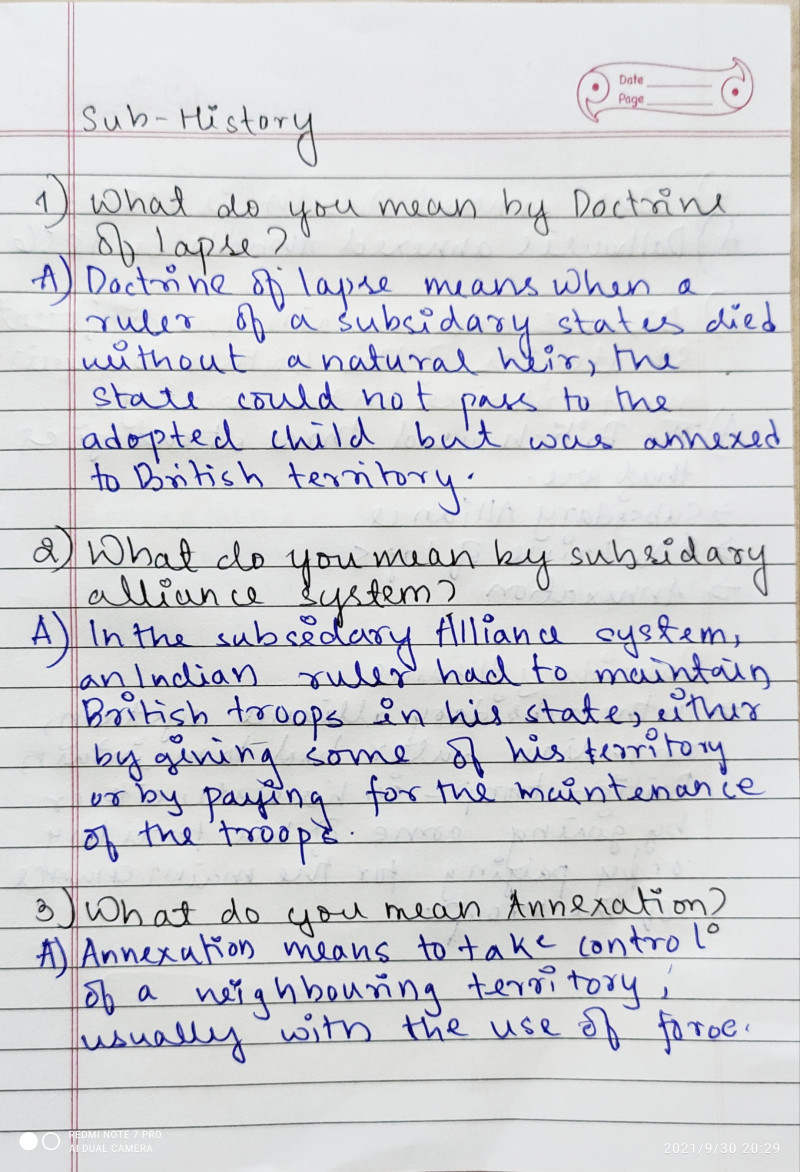 Date
Page
Sub-History
1) What do you mean by Doctrine
of lapse?
A) Doctrine of lapse means when a
ruler of a subsidary states died
without a natural heir, the
state could not pass to the
adopted child but was annexed
to British territory.
2) What do you mean by subsidary
alliance system?
A) In the subsedary Alliance system,
an Indian ruler had to maintain
British troops in his state, either
by giving some of his territory
or by paying for the maintenance
of the troops.
3) What do you mean Annexation?
A) Annexation means to take control
of a neighbouring territory,
usually with the use of force.
REDMI NOTE 7 PRO
AI DUAL CAMERA
2021/9/30 20:29